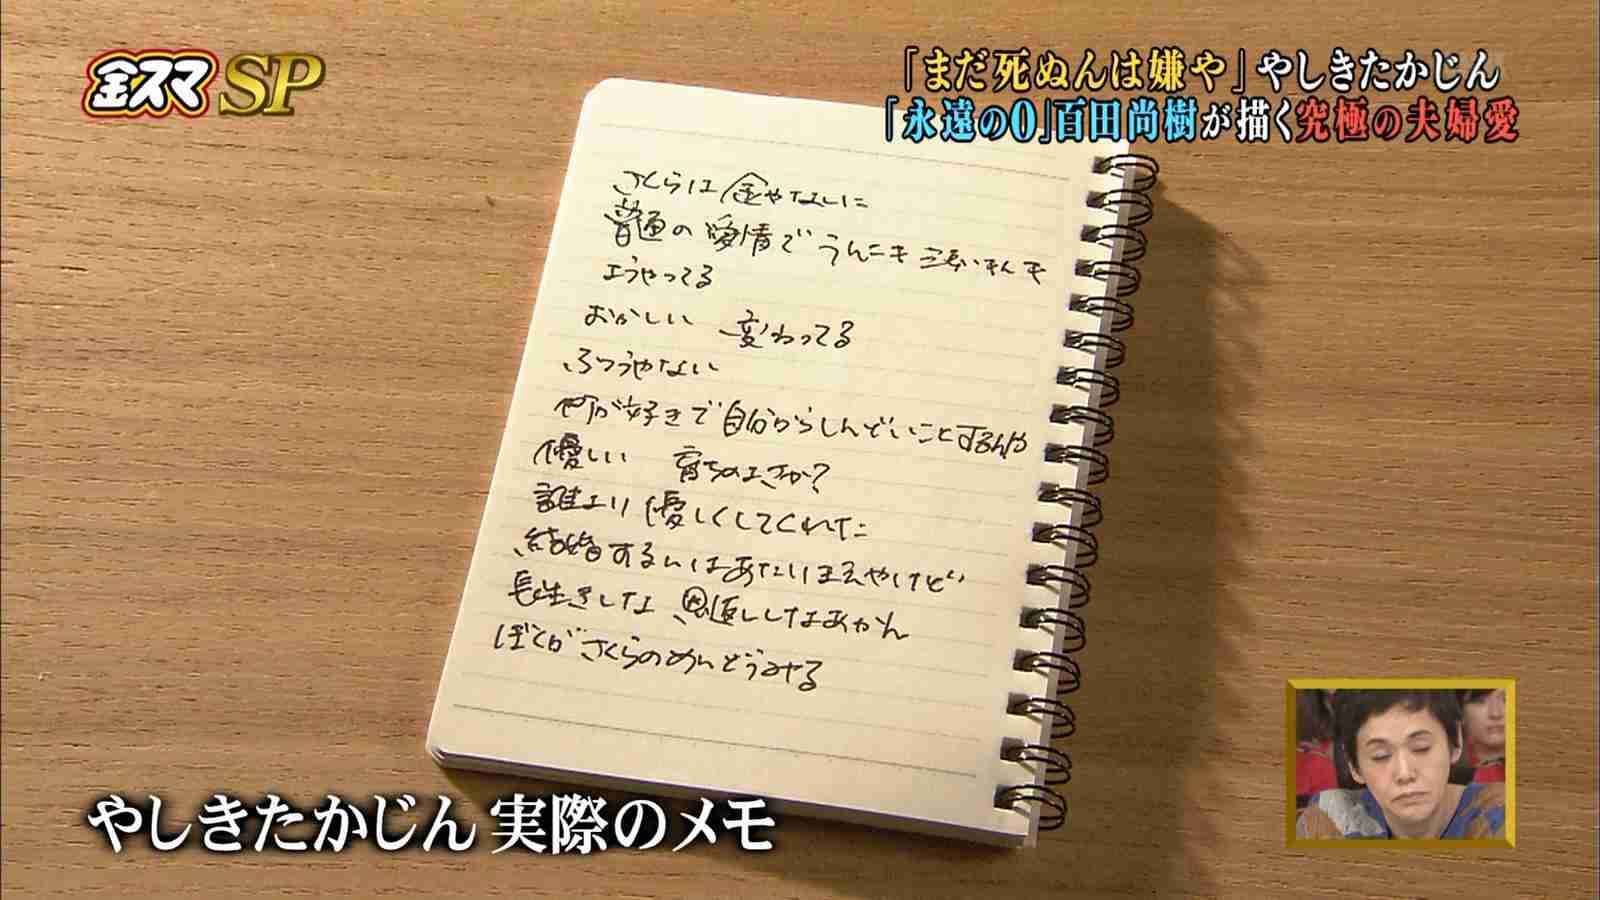 金スマSP
「まだ死ぬんは嫌や」やしきたかじん
「永遠の0」百田尚樹が描く究極の夫婦愛
さくらは金やなしに
普通の愛情でうんこも
ようやってる
おかしい 変わってる
ふつうやない
が好きで自分からしんどいことするんや
優しい 育ちのよさか?
誰より優しくしてくれた
結婚するんはあたりまえやけど
長生きしたな 恩返ししなあかん
ぼくがさくらのめんどうみる
やしきたかじん 実際のメモ